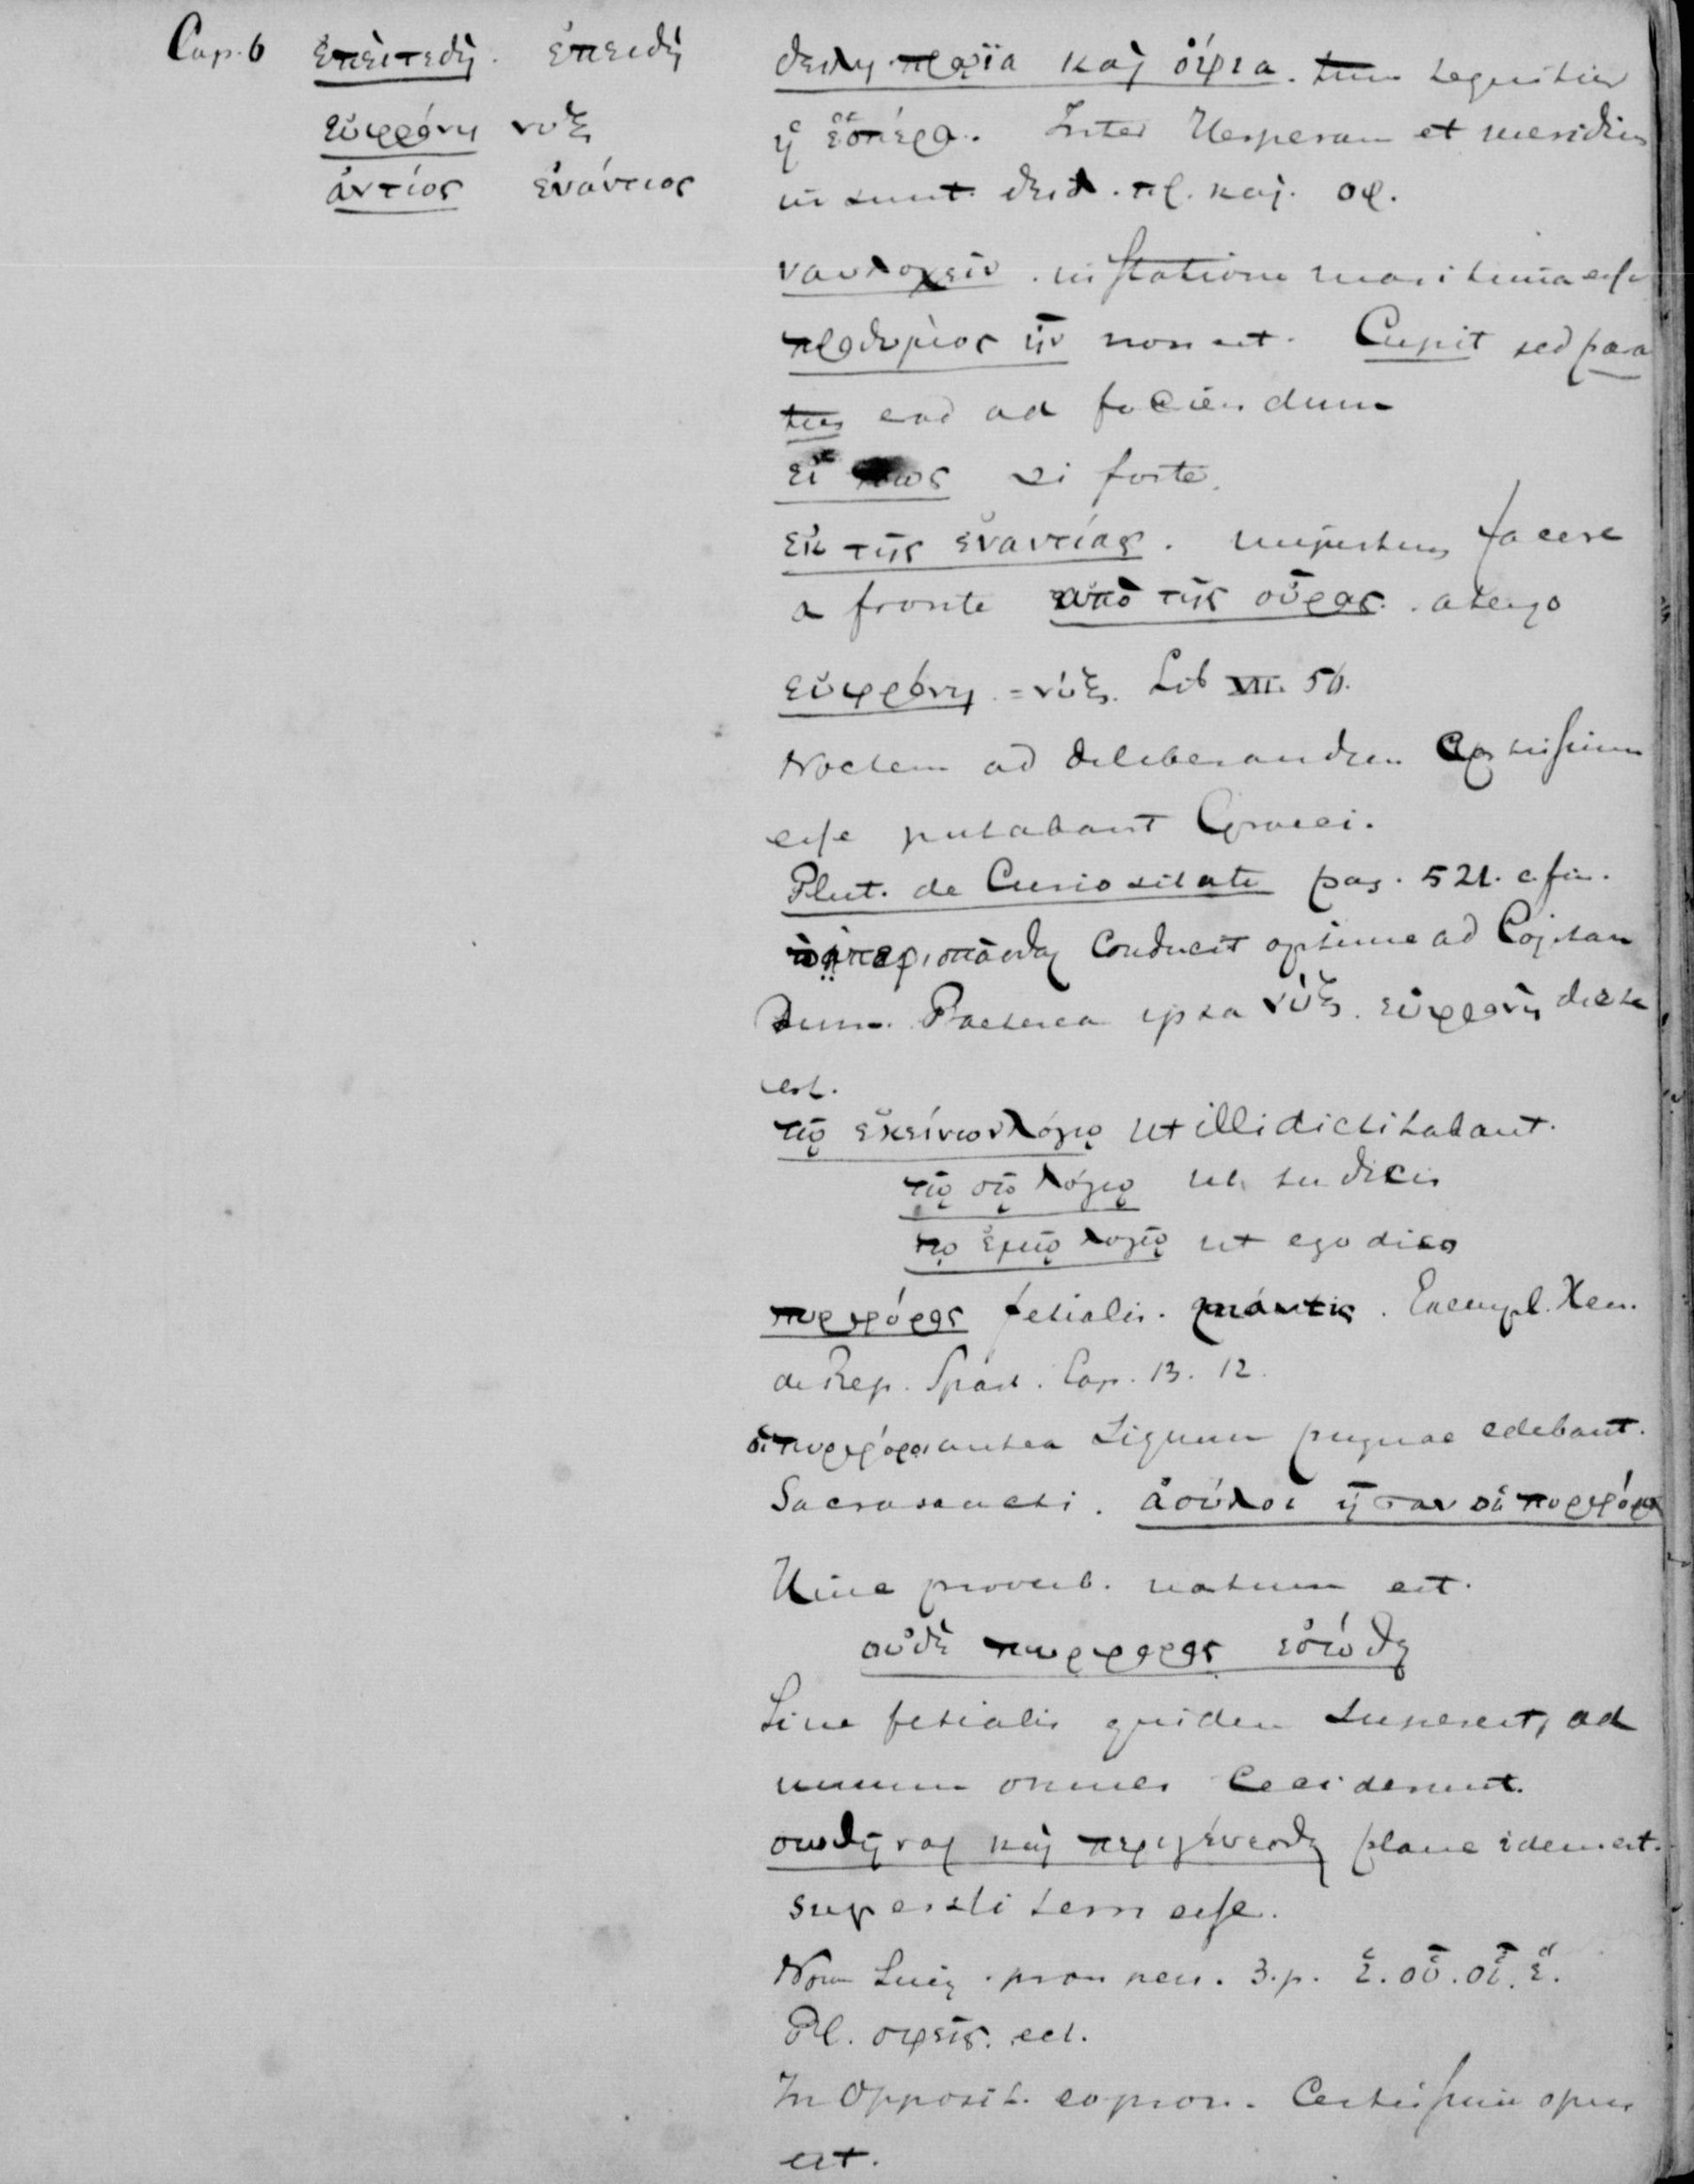 Cap. 6 ἐπείτεδὴ. ἐπειδὴ
εὐφρόνη νυξ
ἀντίος ἐνάντιος
δειλη πρωϊα καὶ ὀψια. tum sequitur
ἡ ἑσπέρα. Inter Vesperam et meridiem
sunt δειλ. πρ. καὶ. οψ.
ναυλοχεῖν. in statione maritima esse
προθυμιος ἦν non est. Cupit sed para
tus erat ad faciendum
εἴ πως si forte.
ἐκ τῆς ἐναντίας. impetum facere
a fronte ἀπὸ τῆς οὐρᾶς. a tergo
εὐφρόνη = νύξ. Lib VII. 56.
Noctem ad deliberandum aptissimum
esse putabant Graeci.
Plut. de Curiositate pag. 521. c. fin.
conducit optime ad Cogitan
dum. Praeterea ipsa νύξ. εὐφρονη dicta
est.
τῷ ἐκείνων λόγῳ ut illi dictitabant.
τῷ σῷ λόγῳ ut tu dicis
τῳ ἐμῷ λογῳ ut ego dico
πυρφόρος fetialis. μάντις. Exempl. Xen.
de Rep. Spart. Cap. 13. 12.
οἱ πυρφόροι antea signum pugnae edebant.
Sacrosancti. ἀσύλοι ἦσαν οἱ πυρφόροι
Hinc proverb. natum est.
οὐδὲ πυρφορος ἐσώθη
Sine fetialis quidem superest, ad
unum omnes ceciderunt.
σωθῆναι καὶ περιγένεσθαι plane idem est.
superstitem esse.
Nom Sing. pron pers. 3. p. ἑ. οὗ. οἷ. ἕ.
Pl. σφεῖς. ect.
In Opposit. eo pron. Certissime opus
est.